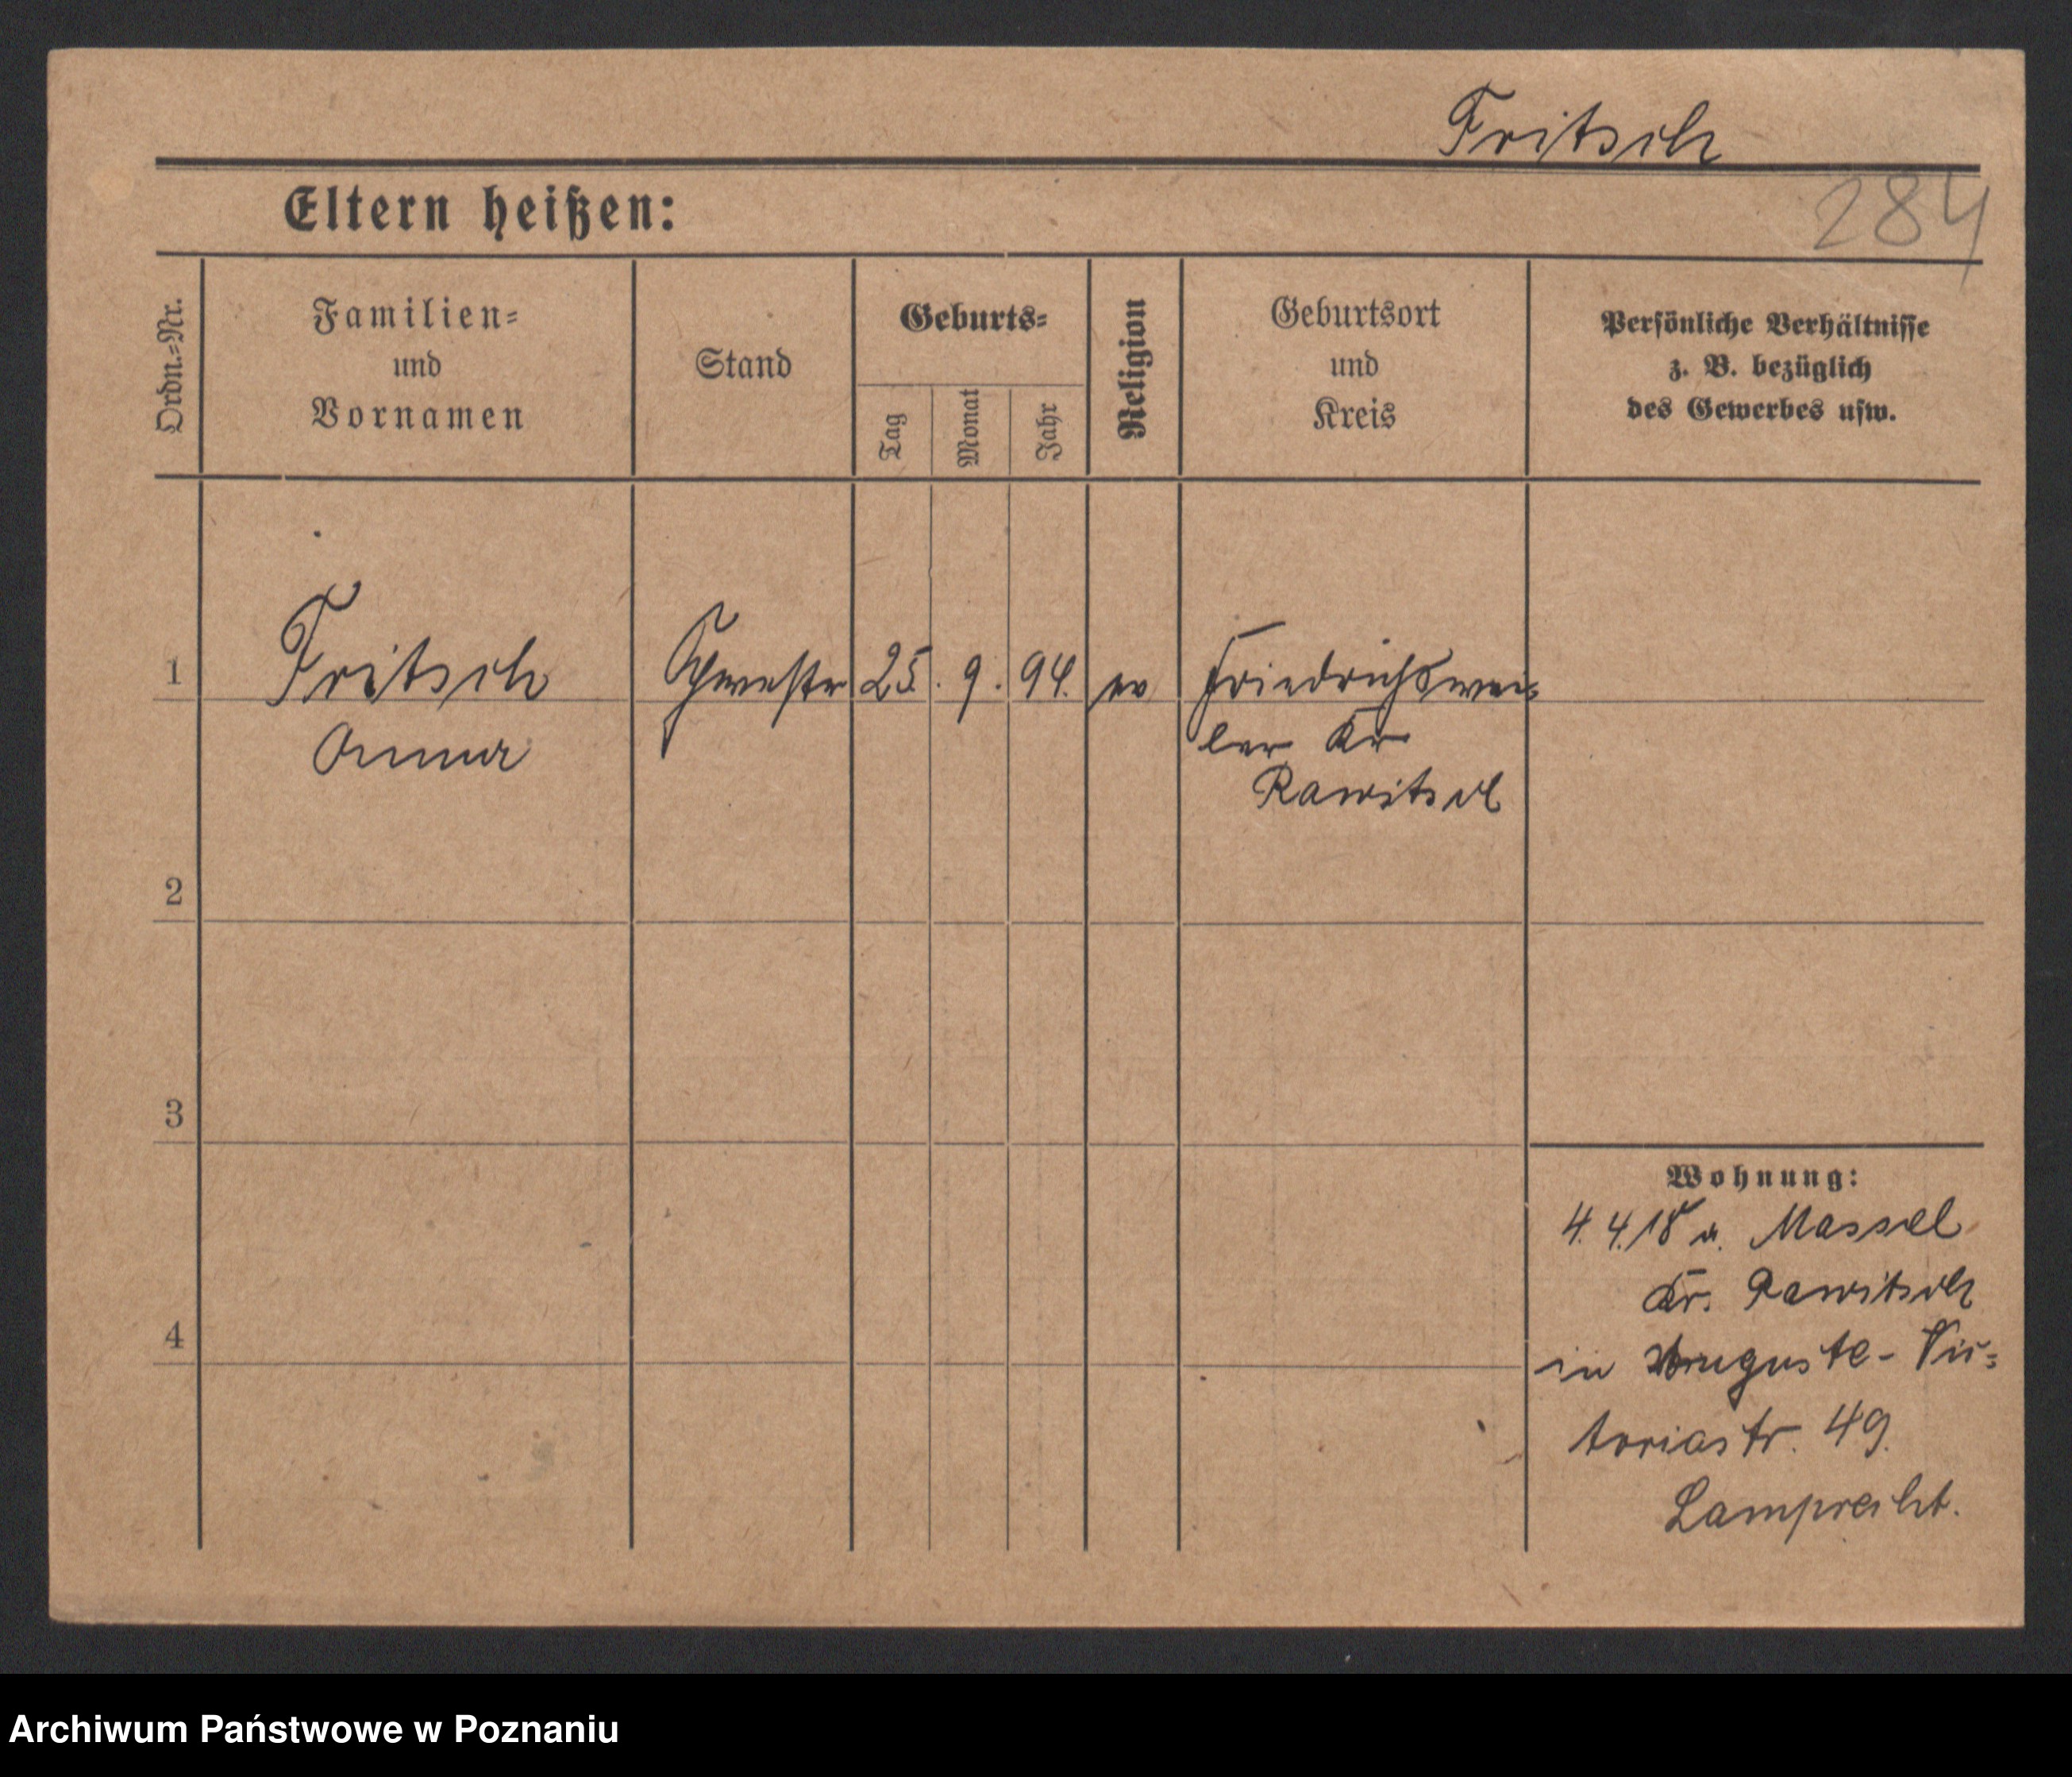 Fritsch
284
Eltern heißen:
Ordn.-Nr.
Familien-
und
Vornamen
Stand
Geburts-
Tag
Monat
Jahr
Religion
Geburtsort
und
Kreis
Persönliche Verhältnisse
z. B. bezüglich
des Gewerbes usw.
1
Fritsch
Anna
Schwester
25. 9. 94.
ev
Friedrichswei-
ler Kr
Rawitsch
2
3
4
Wohnung:
4.4.18 v. Massel
Kr. Rawitsch
in Auguste-Vic-
toriastr. 49.
Lamprecht.
Archiwum Państwowe w Poznaniu